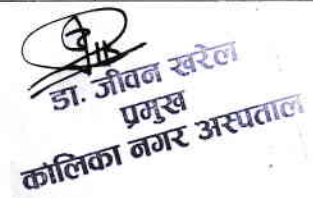 डा. जीवन खरेल
प्रमुख
कालिका नगर अस्पताल